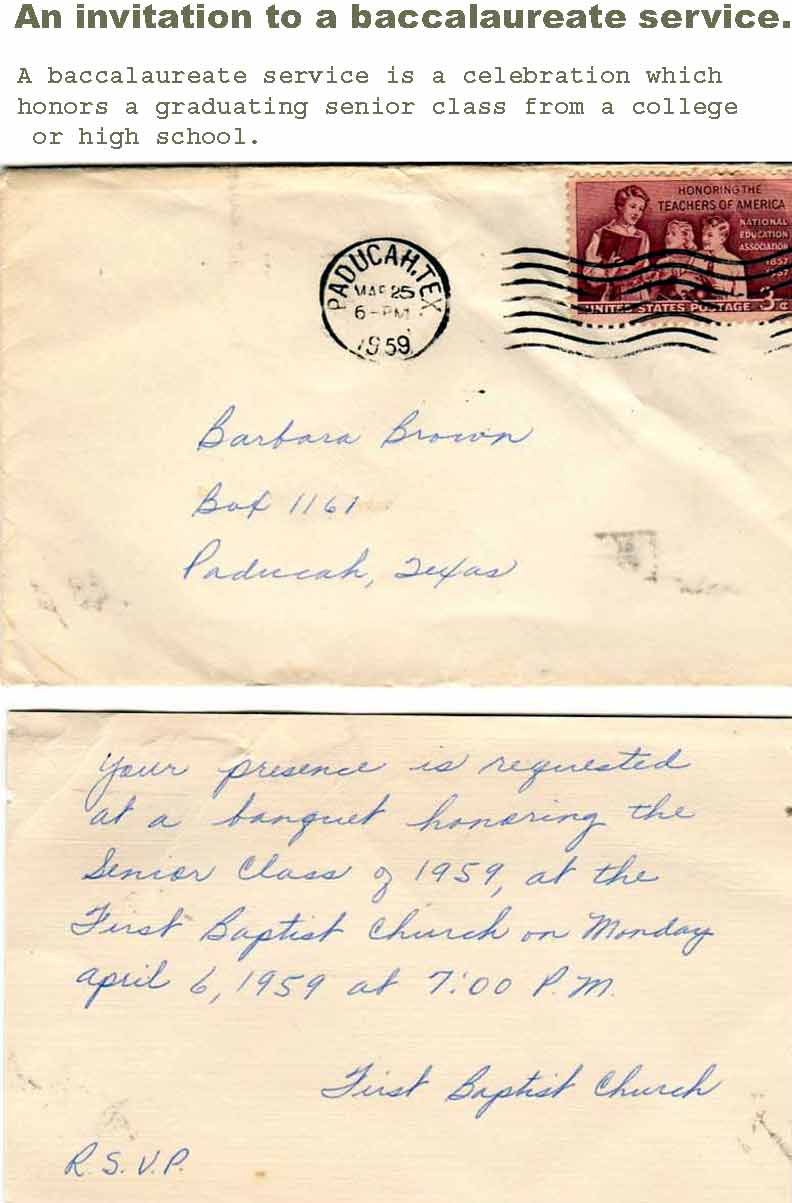 An invitation to a baccalaureate service.
A baccalaureate service is a celebration which
honors a graduating senior class from a college
or high school.
HONORING THE
TEACHERS OF AMERICA
NATIONAL
EDUCATION
ASSOCIATION
1857
UNITED STATES POSTAGE 3¢
PADUCAH, TEX
MAR 25
6-PM
1959
Barbara Brown
Box 1161
Paducah, Texas
Your presence is requested
at a banquet honoring the
Senior Class of 1959, at the
First Baptist Church on Monday
april 6, 1959 at 7:00 P.M.
First Baptist Church
R.S.V.P.